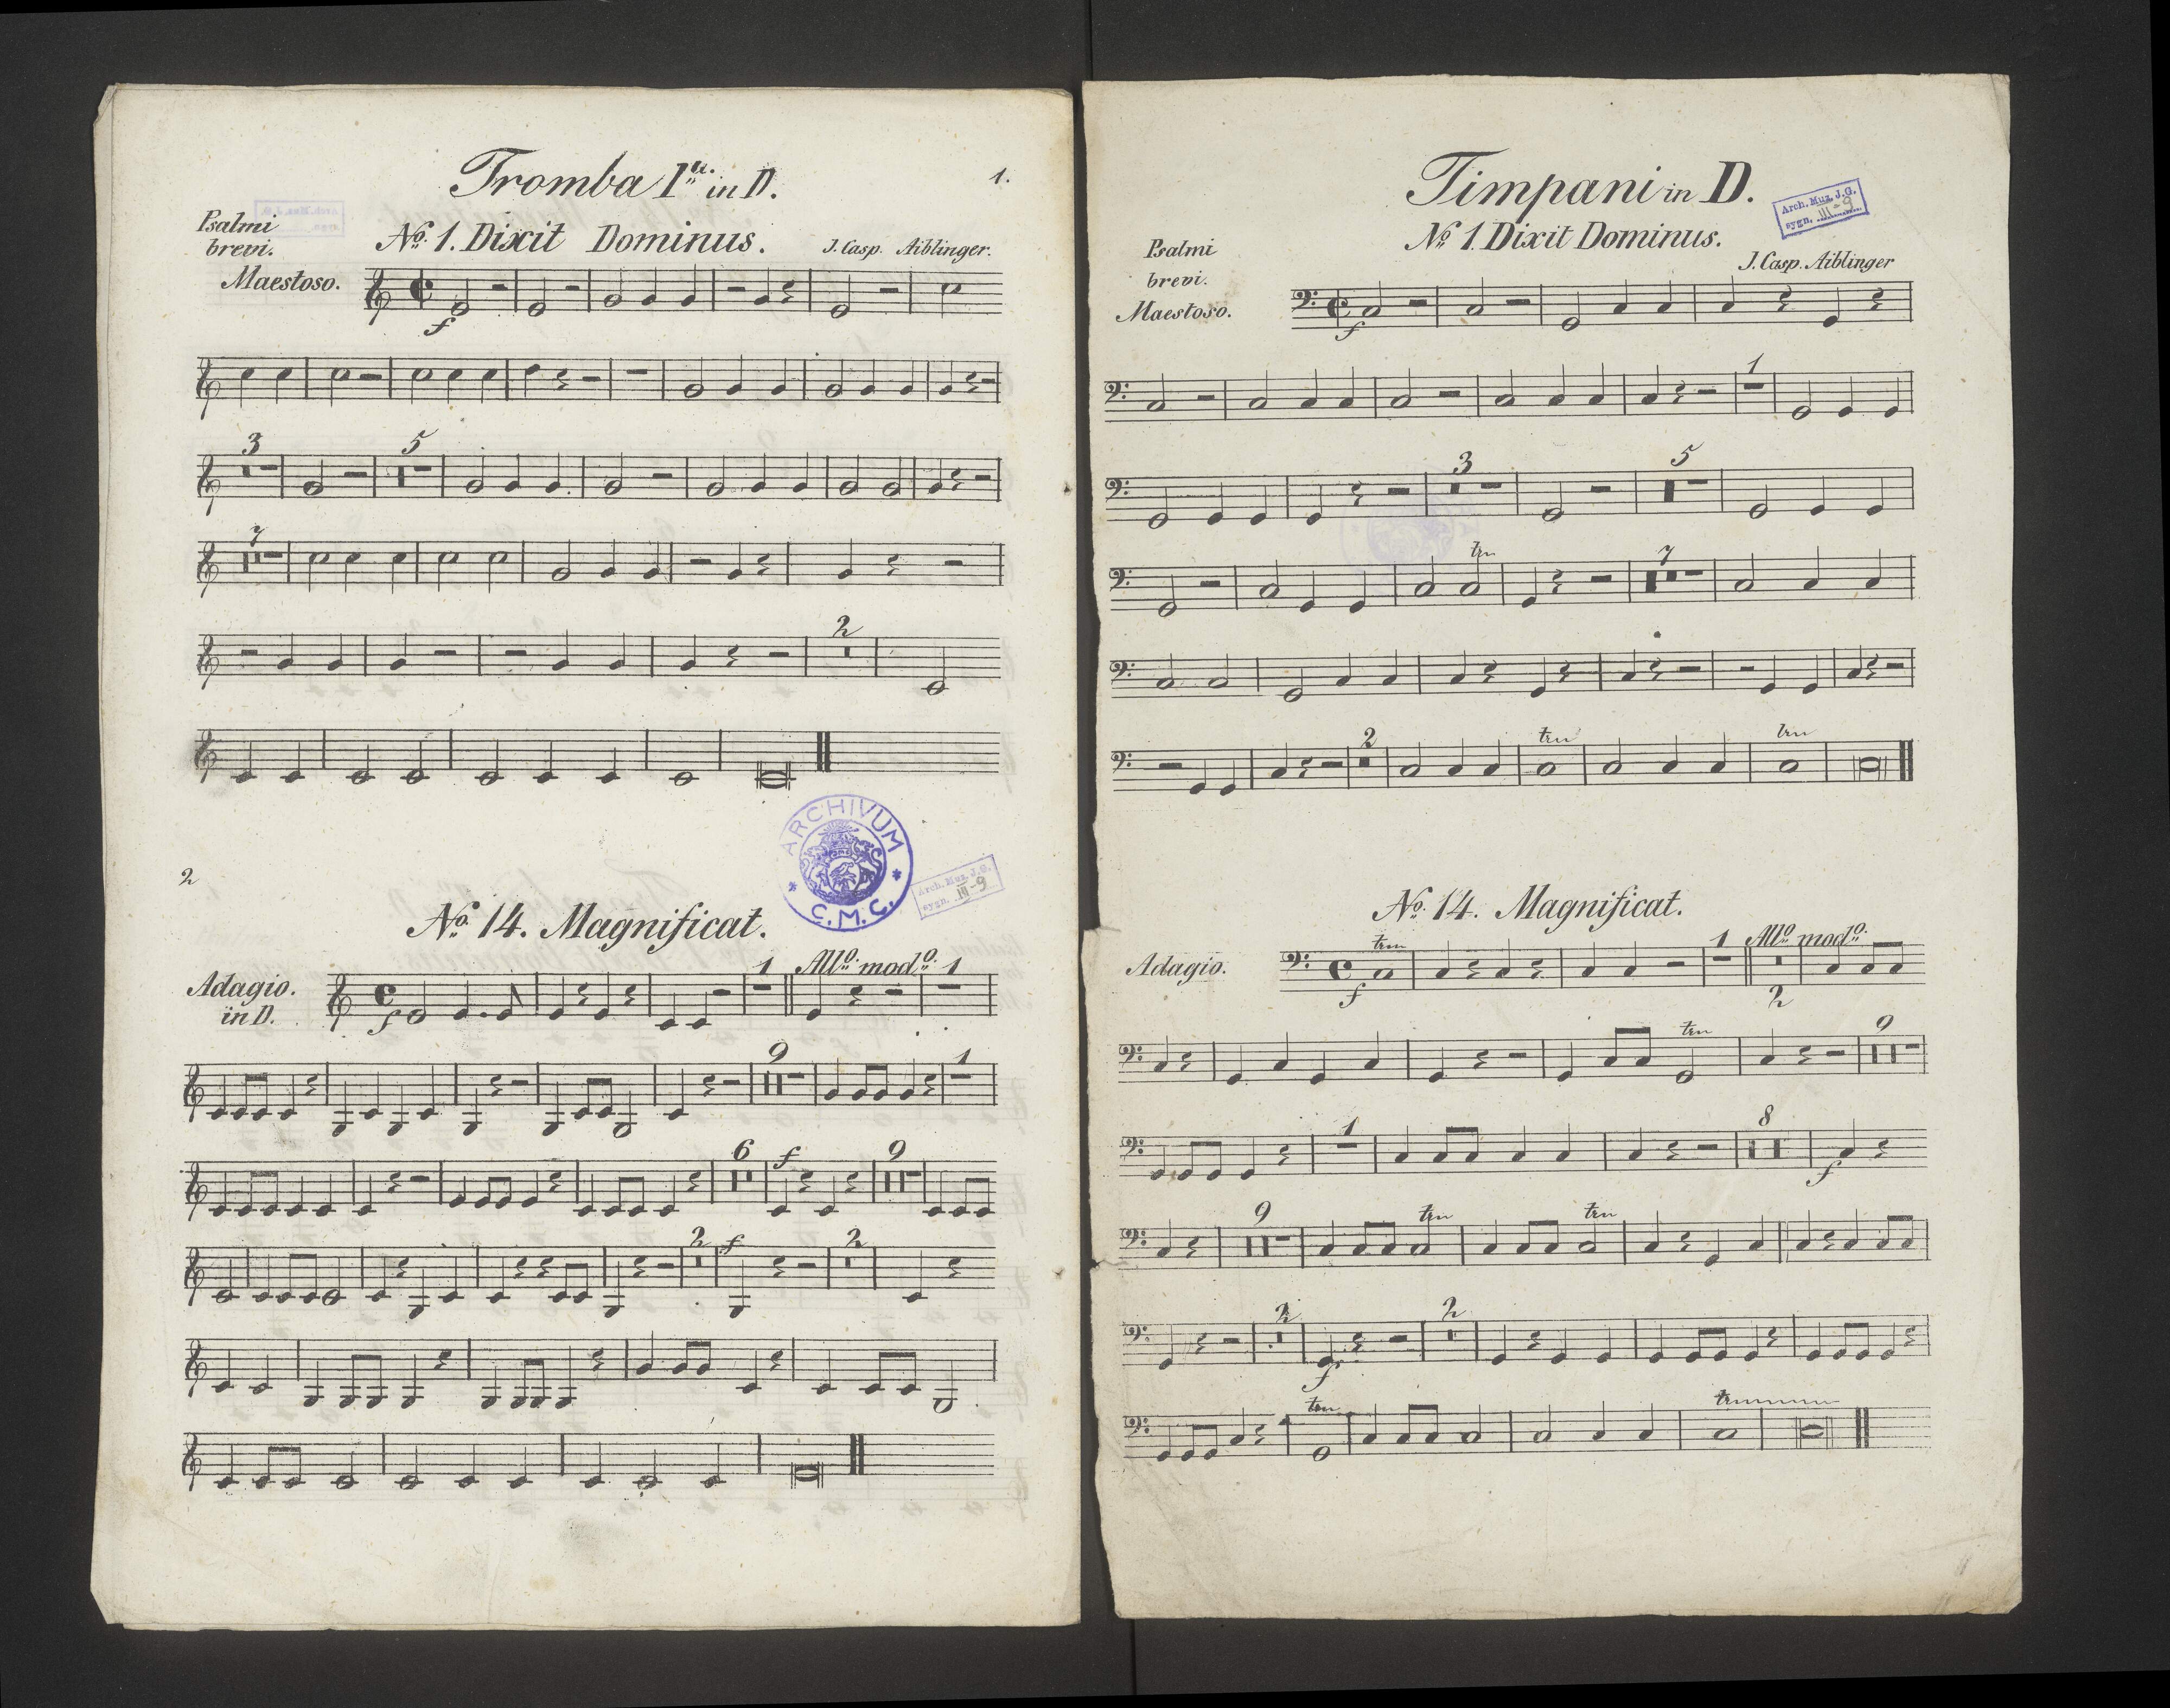 Tromba 1ª. in D.
1.
Psalmi
brevi.
Nº. 1. Dixit Dominus.
J. Casp. Aiblinger.
Maestoso.
f
3
5
7
2
ARCHIVUM
C.M.C.
Arch. Muz. J.G.
sygn. III-9
2
Nº. 14. Magnificat.
Adagio.
in D.
f
1
Allº. modº.
1
9
1
6
f
9
2
f
2
Timpani in D.
Arch. Muz. J.G.
sygn. III-9
Nº 1. Dixit Dominus.
Psalmi
brevi.
J. Casp. Aiblinger
Maestoso.
f
1
3
5
trn
7
2
trn
trn
Nº. 14. Magnificat.
Adagio.
trn
f
1
Allº. modº.
2
trn
9
1
8
f
9
trn
trn
2
f
2
trn
trn